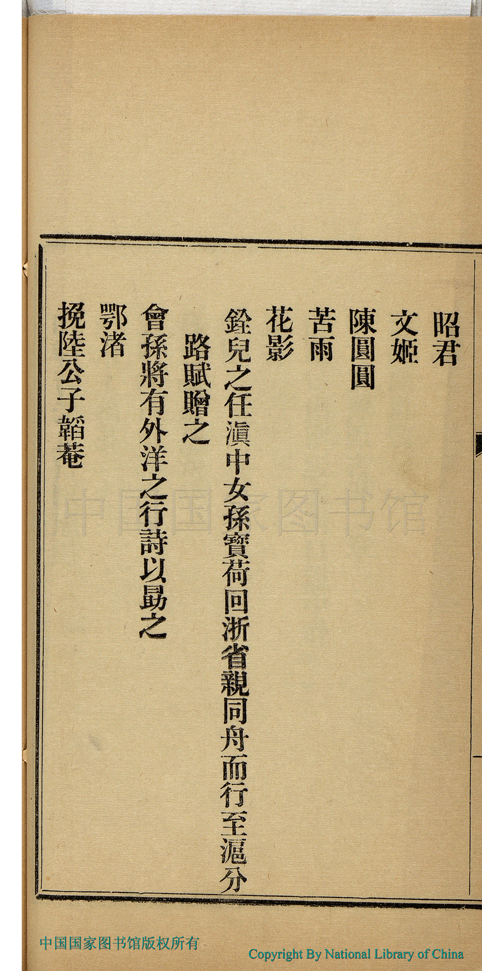 昭君
文姬
陳圓圓
苦雨
花影
銓兒之任滇中女孫寶荷回浙省親同舟而行至滬分
路賦贈之
曾孫將有外洋之行詩以勗之
鄂渚
挽陸公子韜菴
中国国家图书馆
中国国家图书馆版权所有
Copyright By National Library of China